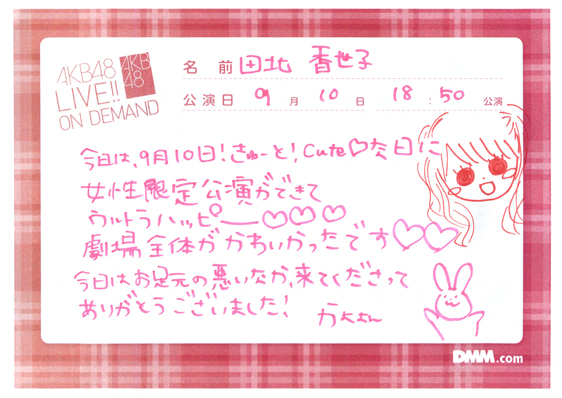 AKB48
LIVE!!
ON DEMAND
AKB
48
名 前 田北 香世子
公演日 9 月 10 日 18 : 50 公演
今日は、9月10日!きゅーと!、Cute♡な日に
女性限定公演ができて
ウルトラハッピー♡♡♡
劇場全体がかわいかったです♡♡
今日はお足元の悪いなか、来てくださって
ありがとうございました!
DMM.com